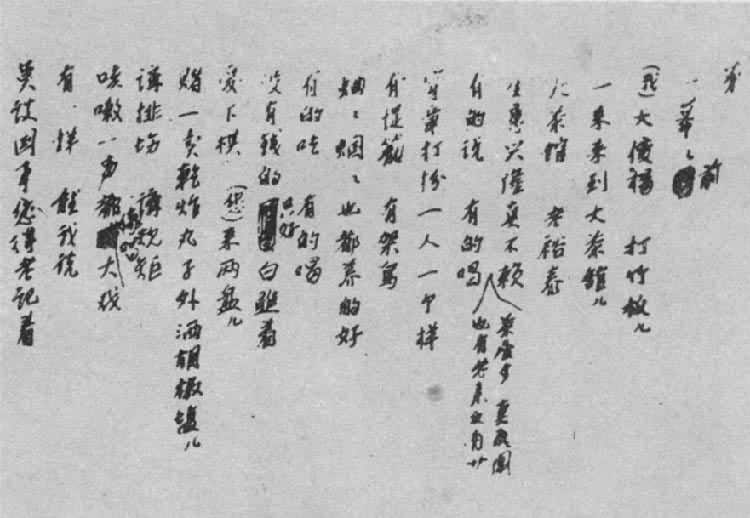 第
一幕〻前
(我)大傻楊 打竹板儿
一来来到大茶館儿
大茶館 老裕泰
生意兴隆真不赖
茶座多 真热闹
也有老来也有少
有的说 有的唱
穿章打扮一人一个样
有提籠 有架鸟
蛐〻蝈〻也都养的好
有的吃 有的喝
没有钱的只好白瞧着
爱下棋 (您)来两盘儿
赌一卖乾炸丸子外洒胡椒盐儿
講排场 講规矩
咳嗽一声都像唱大戏
有一样 听我说
莫谈国事您得老記着